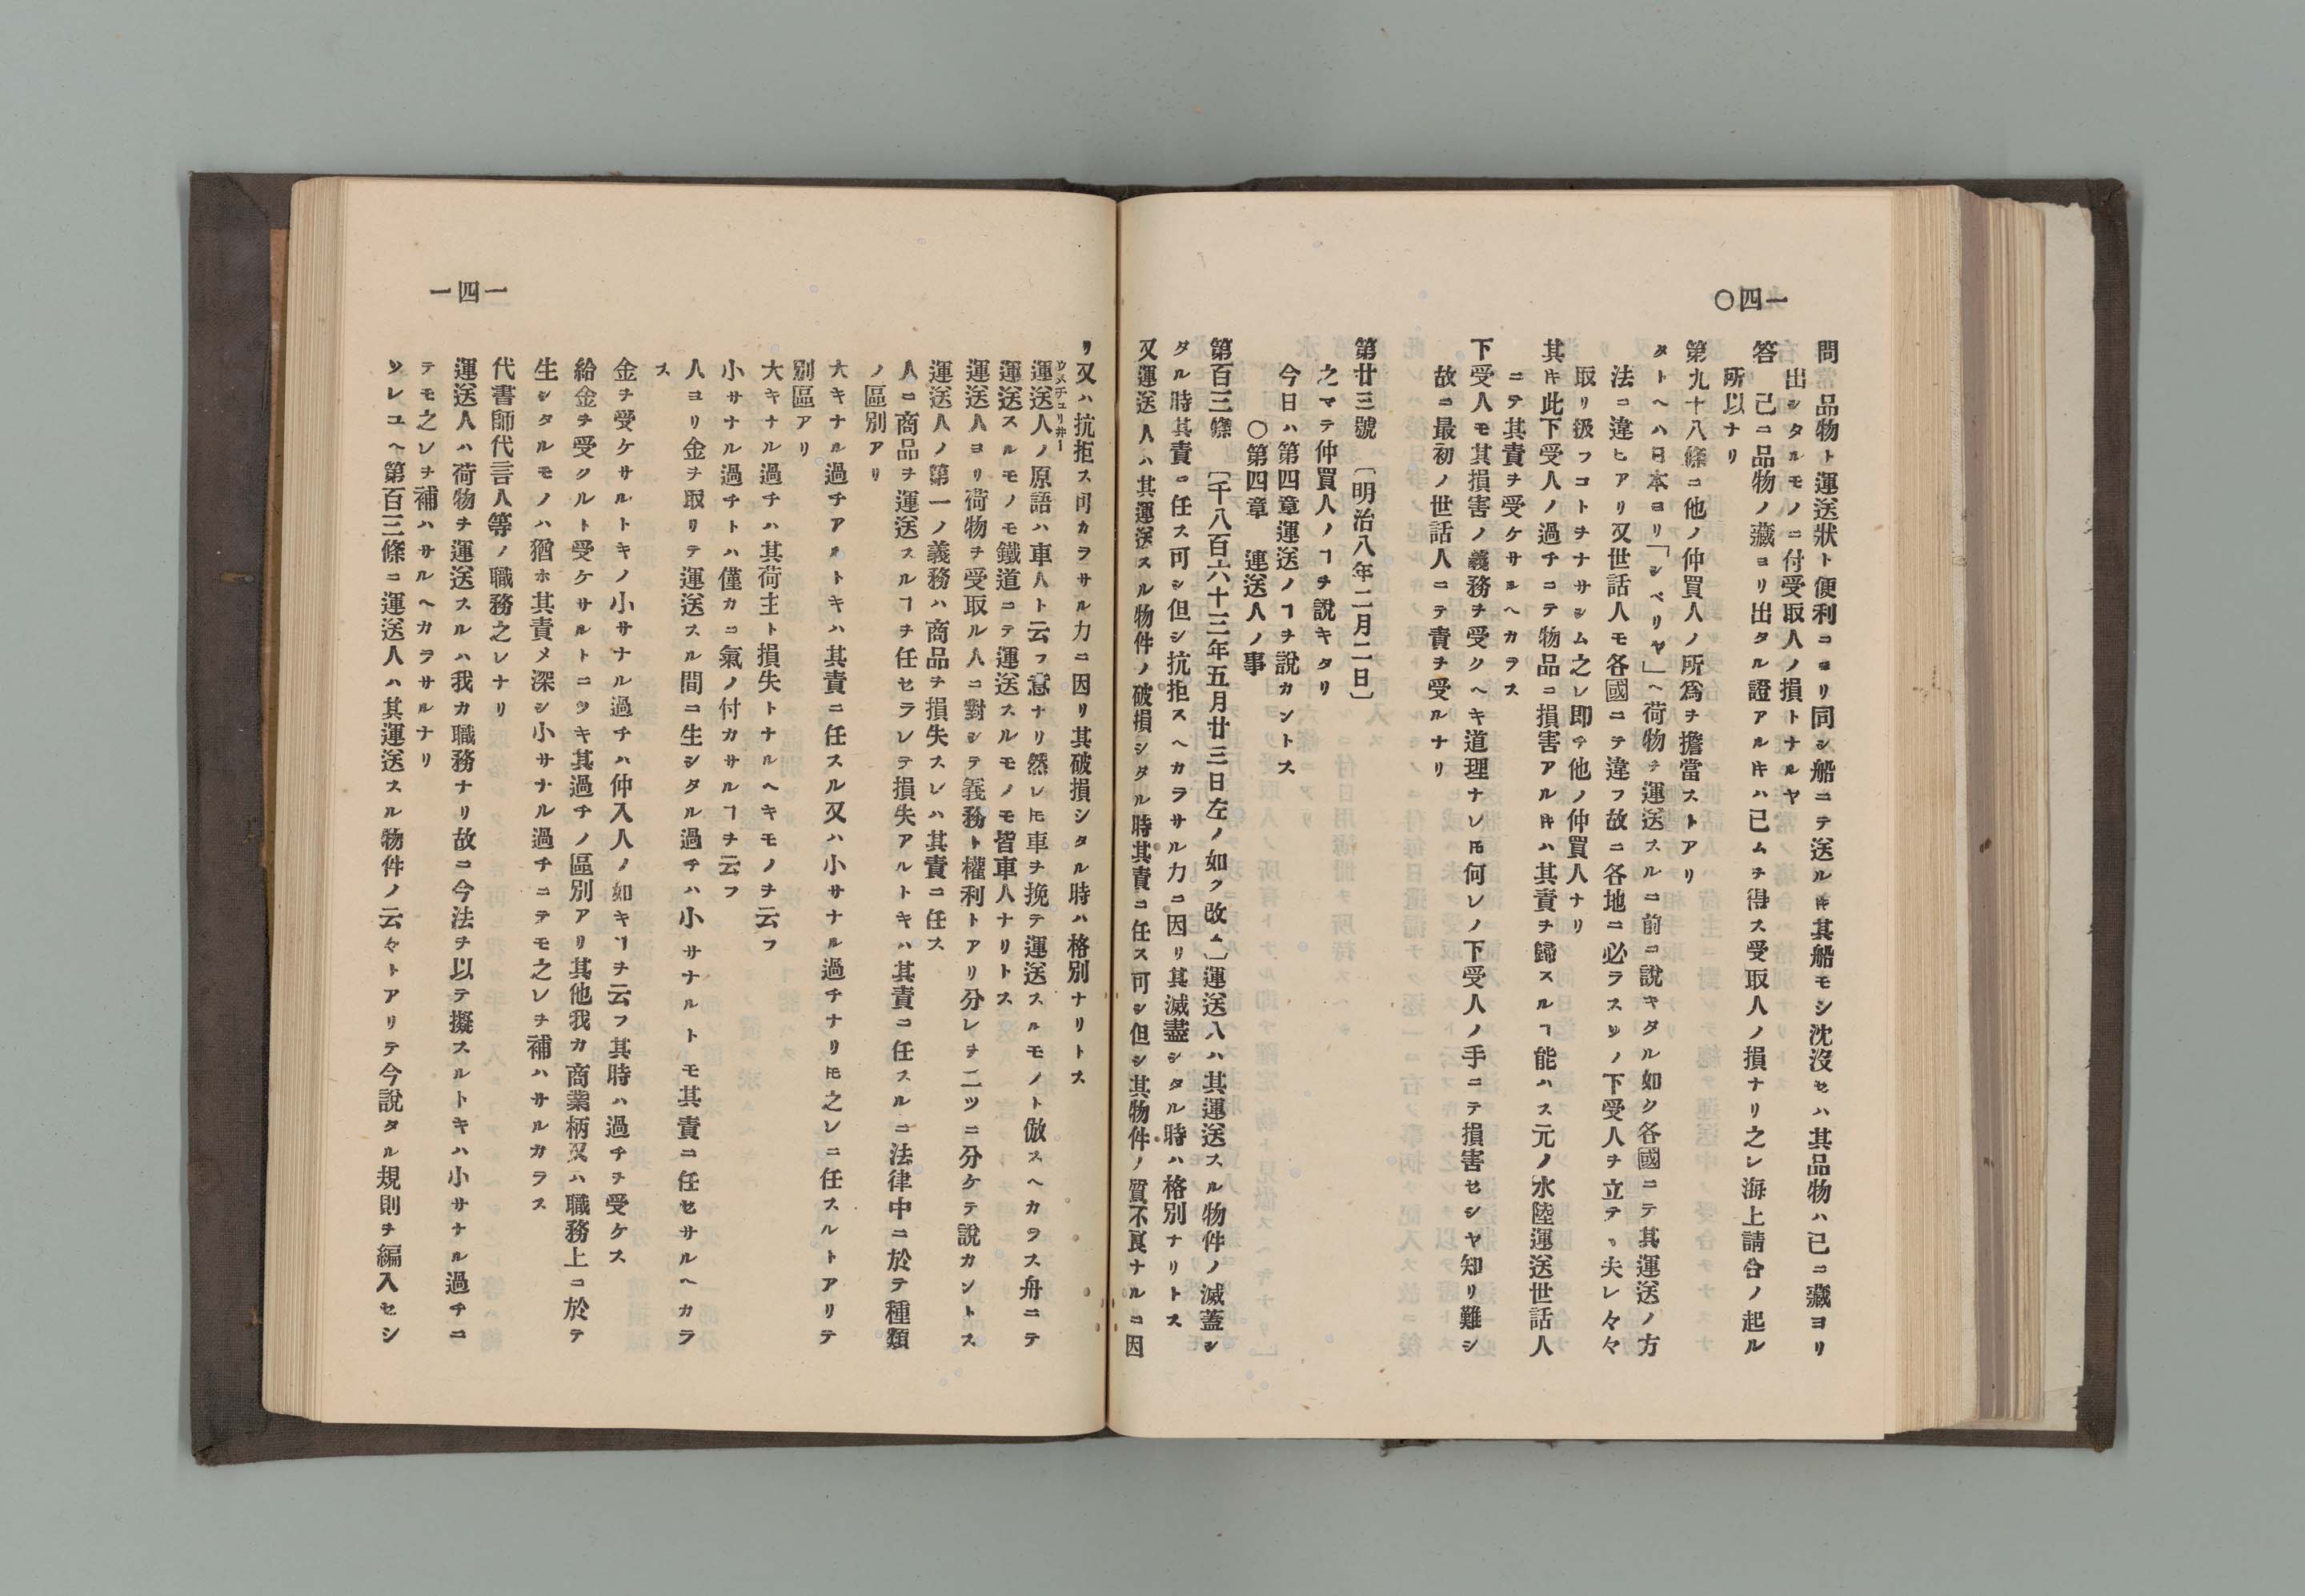 一四〇
問 品物ト運送狀ト便利ニヨリ同シ船ニテ送ルキ其船モシ沈沒セハ其品物ハ已ニ藏ヨリ
出シタルモノニ付受取人ノ損トナルヤ
答 已ニ品物ノ藏ヨリ出タル證アルキハ已ムヲ得ス受取人ノ損ナリ之レ海上請合ノ起ル
所以ナリ
第九十八條ニ他ノ仲買人ノ所爲ヲ擔當ストアリ
タトヘハ日本ヨリ「シベリヤ」ヘ荷物ヲ運送スルニ前ニ說キタル如ク各國ニテ其運送ノ方
法ニ違ヒアリ又世話人モ各國ニテ違フ故ニ各地ニ必ラスソノ下受人ヲ立テヽ夫レ々々
取リ扱フコトヲナサシム之レ即チ他ノ仲買人ナリ
其キ此下受人ノ過チニテ物品ニ損害アルキハ其責ヲ歸スルヿ能ハス元ノ水陸運送世話人
ニテ其責ヲ受ケサルヘカラス
下受人モ其損害ノ義務ヲ受クヘキ道理ナレ𪜈何レノ下受人ノ手ニテ損害セシヤ知リ難シ
故ニ最初ノ世話人ニテ責ヲ受ルナリ
第廿三號 〔明治八年二月二日〕
之マテ仲買人ノヿヲ說キタリ
今日ハ第四章運送ノヿヲ說カントス
〇第四章 運送人ノ事
第百三條 〔千八百六十三年五月廿三日左ノ如ク改ム〕運送人ハ其運送スル物件ノ滅盡シ
タル時其責ニ任ス可シ但シ抗拒スヘカラサル力ニ因リ其滅盡シタル時ハ格別ナリトス
又運送人ハ其運送スル物件ノ破損シタル時其責ニ任ス可シ但シ其物件ノ質不良ナルニ因
一四一
リ又ハ抗拒ス可カラサル力ニ因リ其破損シタル時ハ格別ナリトス
運送人ノ原語ハ車人ト云フ意ナリ然レ𪜈車ヲ挽テ運送スルモノト倣スヘカラス舟ニテ
運送スルモノモ鐵道ニテ運送スルモノモ皆車人ナリトス
運送人ヨリ荷物ヲ受取ル人ニ對シテ義務ト權利トアリ分レヲ二ツニ分ケテ說カントス
運送人ノ第一ノ義務ハ商品ヲ損失スレハ其責ニ任ス
人ニ商品ヲ運送スルヿヲ任セラレテ損失アルトキハ其責ニ任スルニ法律中ニ於テ種類
ノ區別アリ
大キナル過チアルトキハ其責ニ任スル又ハ小サナル過チナリ𪜈之レニ任スルトアリテ
別區アリ
大キナル過チハ其荷主ト損失トナルヘキモノヲ云フ
小サナル過チトハ僅カニ氣ノ付カサルヿヲ云フ
人ヨリ金ヲ取リテ運送スル間ニ生シタル過チハ小サナルトモ其責ニ任セサルヘカラ
ス
金ヲ受ケサルトキノ小サナル過チハ仲入人ノ如キヿヲ云フ其時ハ過チヲ受ケス
給金ヲ受クルト受ケサルトニツキ其過チノ區別アリ其他我カ商業柄又ハ職務上ニ於テ
生シタルモノハ猶ホ其責メ深シ小サナル過チニテモ之レヲ補ハサルカラス
代書師代言人等ノ職務之レナリ
運送人ハ荷物ヲ運送スルハ我カ職務ナリ故ニ今法ヲ以テ擬スルトキハ小サナル過チニ
テモ之レヲ補ハサルヘカラサルナリ
ソレユヘ第百三條ニ運送人ハ其運送スル物件ノ云々トアリテ今說タル規則ヲ編入セシ